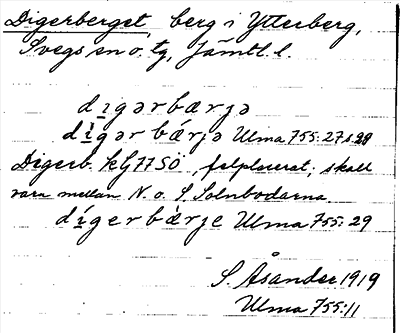 Digerberget, berg i Ytterberg,
Svegs sn o. tg, Jämtl. l.
digərbærjə
dígər bǽrjə Ulma 755:27 s.28
Digerb. kG77SÖ, felplacerat; skall
vara mellan N. o. S. Solnbodarna.
dígerbærje Ulma 755:29
S. Åsander 1919
Ulma 755:11